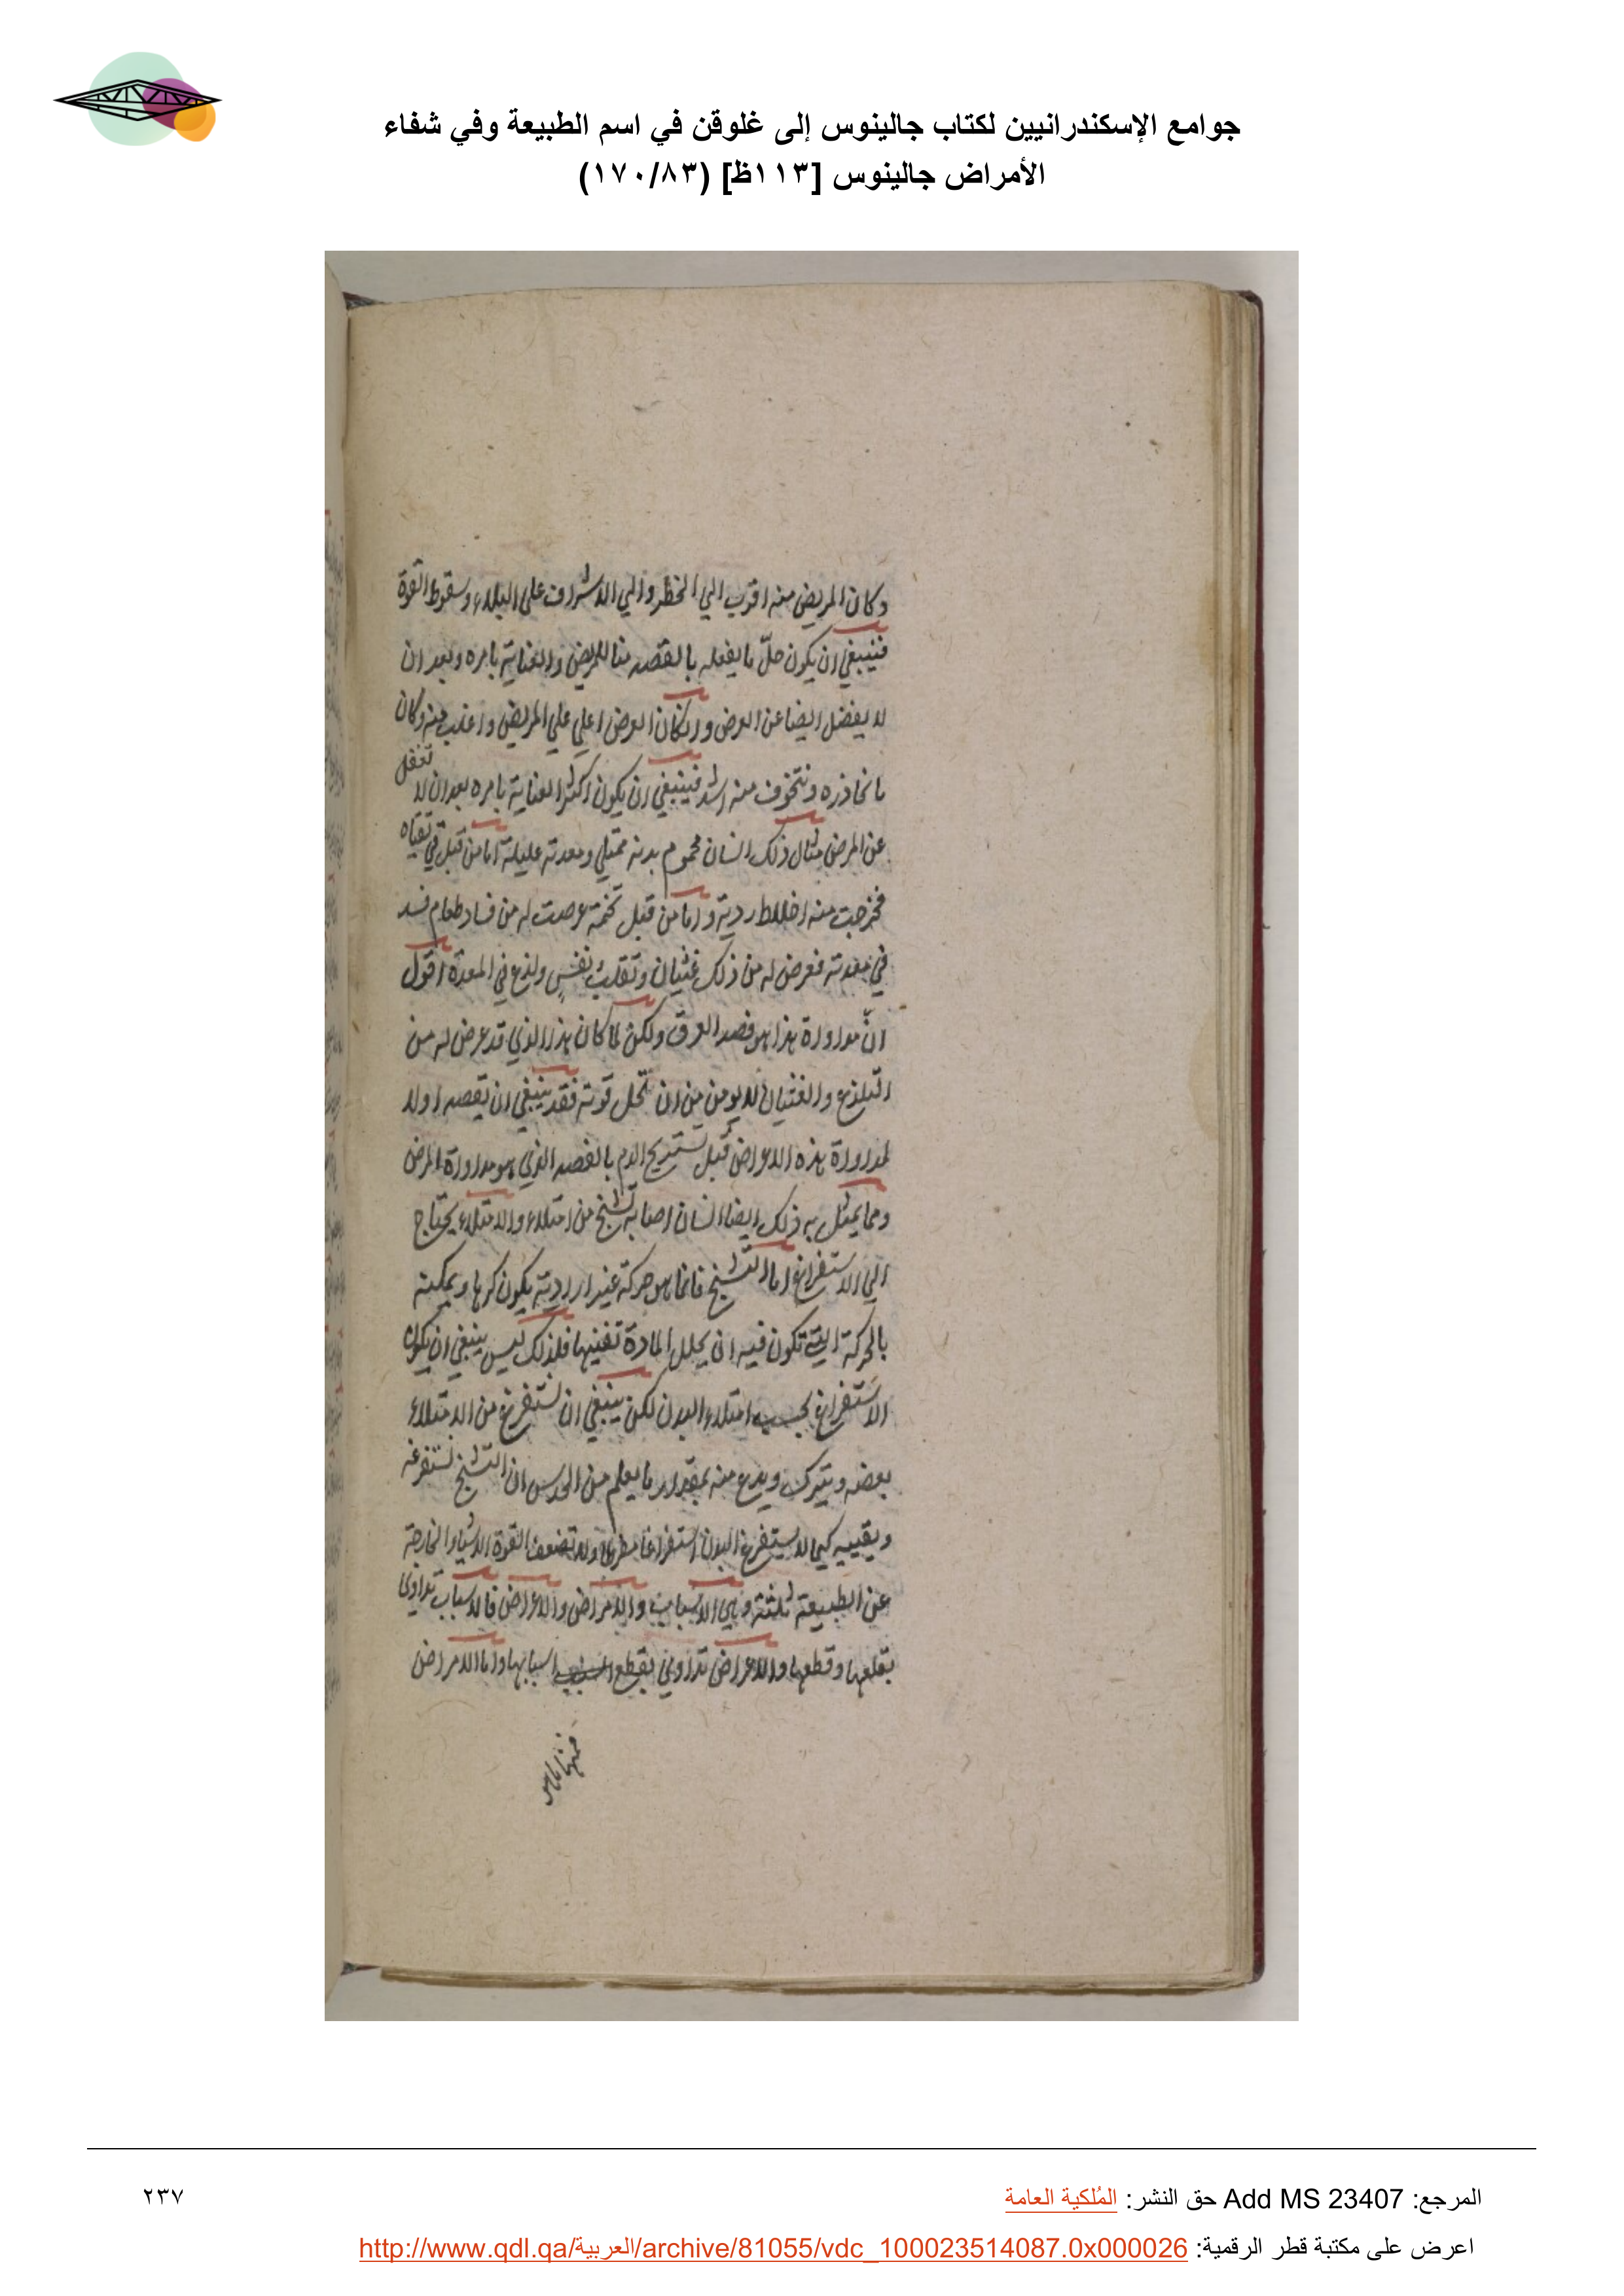 جوامع الإسكندرانيين لكتاب جالينوس إلى غلوقن في اسم الطبيعة وفي شفاء
الأمراض جالينوس [١١٣ظ] (١٧٠/٨٣)
وكان المريض منه اقرب الي الخطر والي الاشراف علي البلاء وسقوط القوة
فينبغي ان يكون جلّ ما يفعله بالقصد منا للمريض والعناية بامره وبعد ان
لا يغفل ايضا عن العرض وان كان العرض اعلي علي المريض واغلب منه وكان
ما نحاذره ونتخوف منه اشد فينبغي ان يكون اكثر العناية بامره بعد ان لا تغفل
عن المرض مثال ذلك انسان محموم بدنه ممتلي ومعدته عليلة اما من قبل قي تقياه
فخرجت منه اخلاط ردية واما من قبل تخمة عرضت له من فساد طعام فسد
في معدته فعرض له من ذلك غثيان وتقلب نفس ولذع في المعدة اقول
انّ مداواة هذا هو فصد العرق ولكن لما كان هذا الذي قد عرض له من
التلذع والغثيان لا يومن من ان تحل قوته فقد ينبغي ان تقصد اولا
لمداواة هذه الاعراض قبل تستريح الدم بالفصد الذي هو مداواة المرض
ومما يمثل به ذلك ايضا انسان اصابه تشنج من امتلاء والامتلاء يحتاج
الي الاستفراغ اما التشنج فانما هو حركة غير ارادية يكون كرها ويمكنه
بالحركة التي تكون فيه ان يحلل المادة تفنيها فلذلك ليس ينبغي ان يكون
الاستفراغ بحسب امتلاء البدن لكن ينبغي ان تستفرغ من الامتلاء
بعضه ويترك ويدع منه بمقدار ما يعلم من الحدس ان التشنج يستفرغه
ويفنيه كيما لا يستفرغ البدن استفراغا مفرطا ولا تضعف القوة الاشياء الخارجة
عن الطبيعة ثلثة وهي الاسباب والامراض والاعراض فالاسباب تداوي
بقلعها وقطعها والاعراض تداوي بقطع اسبابها واما الامراض
فمنها ما هو
المرجع: Add MS 23407 حق النشر: المُلكية العامة
٢٣٧
اعرض على مكتبة قطر الرقمية: http://www.qdl.qa/العربية/archive/81055/vdc_100023514087.0x000026